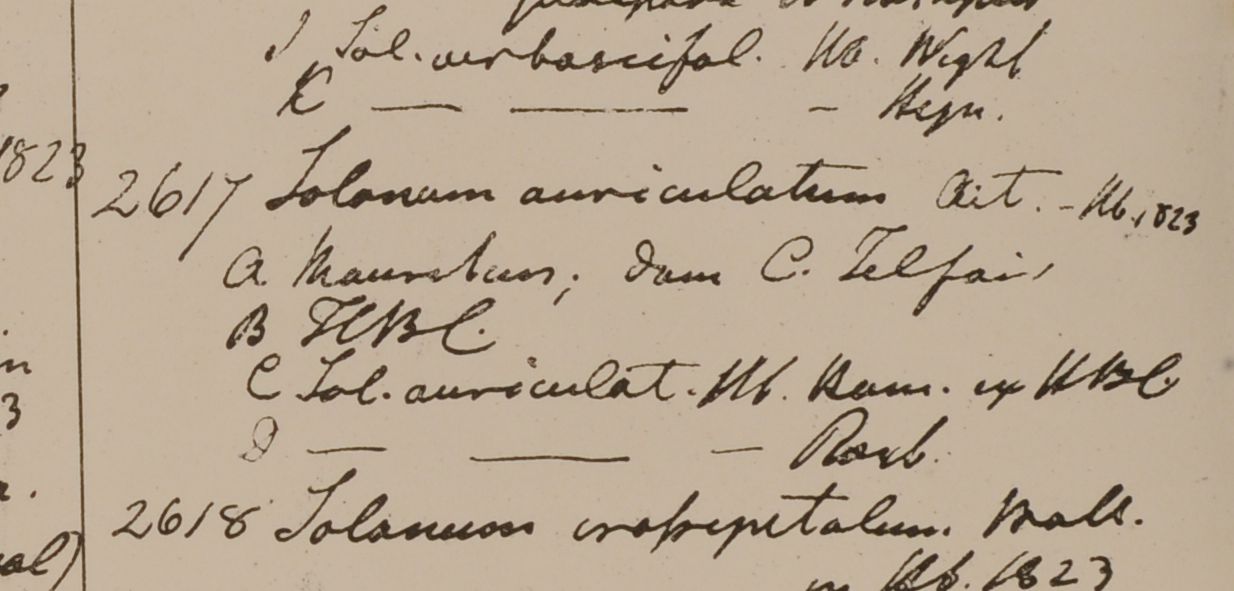 J Sol. verbascifol. Hb. Wight
K — — — Heyn.
1823
2617 Solanum auriculatum Ait. - Hb. 1823
A Mauritius; dam C. Telfair
B HBC.
C Sol. auriculat. Hb. Ham. ex HBC
D — — — Roxb.
2618 Solanum crassipetalum. Wall.
in Hb. 1823